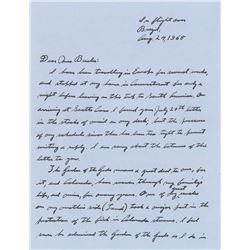 In flight over
Brazil,
Aug 29, 1968
Dear Miss Beebe:
I have been travelling in Europe for several weeks,
and stopped at my home in Connecticut for only a
night before leaving on this trip to South America. On
arriving at Scotts Cove I found your July 29th letter
in the stacks of mail on my desk, but the pressures
of my schedule since then has been too tight to permit
writing a reply. I am sorry about the lateness of this
letter to you.
The Garden of the Gods means a great deal to me, for
it, and Colorado, have woven through my family's
life and mine, for many years. One of my great uncles
on my mother's side (                ) took a major part in the
protection of the Park in Colorado streams. I feel
sure he admired the Garden of the Gods as I do. It